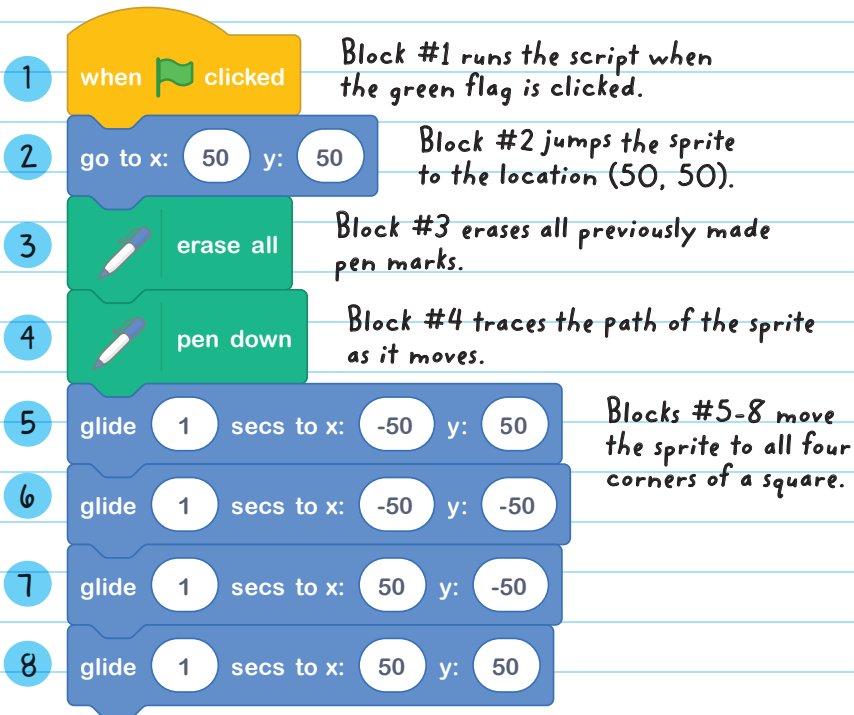 1
when clicked
Block #1 runs the script when
the green flag is clicked.
2
go to x: 50 y: 50
Block #2 jumps the sprite
to the location (50, 50).
3
erase all
Block #3 erases all previously made
pen marks.
4
pen down
Block #4 traces the path of the sprite
as it moves.
5
glide 1 secs to x: -50 y: 50
Blocks #5-8 move
the sprite to all four
corners of a square.
6
glide 1 secs to x: -50 y: -50
7
glide 1 secs to x: 50 y: -50
8
glide 1 secs to x: 50 y: 50